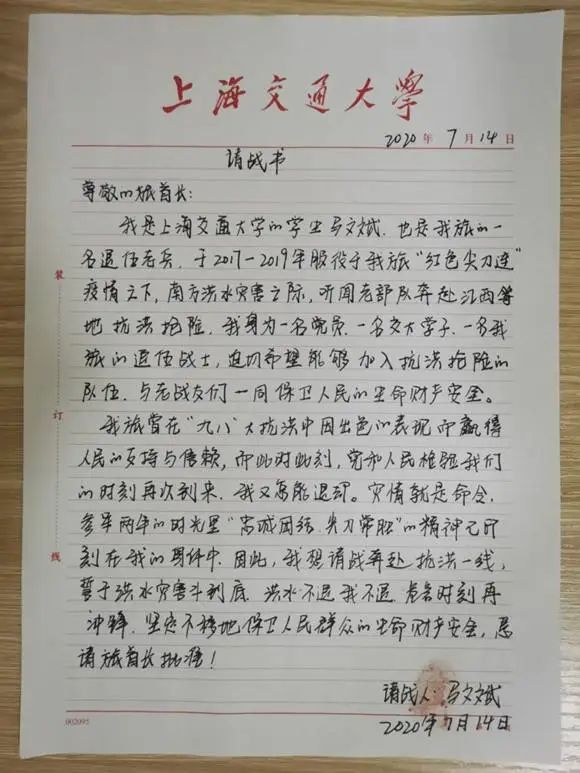 上海交通大學
2020年7月14日
请战书
尊敬的旅首长：
我是上海交通大学的学生马文斌，也是我旅的一
名退伍老兵，于2017-2019年服役于我旅“红色尖刀连”
疫情之下，南方洪水灾害之际，听闻老部队奔赴江西等
地抗洪抢险，我身为一名党员、一名交大学子、一名我
旅的退伍战士，迫切希望能够加入抗洪抢险的
队伍，与老战友们一同保卫人民的生命财产安全。
我旅曾在“九八”大抗洪中因出色的表现而赢得
人民的支持与信赖，而此时此刻，党和人民检验我们
的时刻再次到来，我又怎能退却。灾情就是命令，
参军两年的时光里“忠诚团结、尖刀常胜”的精神已印
刻在我的身体中，因此，我想请战再赴抗洪一线，
誓于洪水灾害斗到底，洪水不退我不退，危急时刻再
冲锋，坚定不移地保卫人民群众的生命财产安全，恳
请旅首长批准！
请战人：马文斌
2020年7月14日
装
订
线
002095